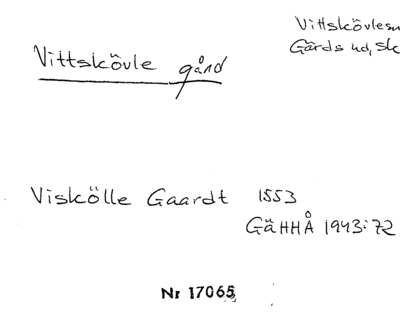 Vittskövlesn
Gärds hd, Sk
Vittskövle gård
Viskölle Gaardt 1553
GäHHÅ 1943:72
Nr 17065